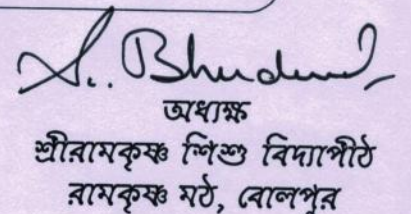 অধ্যক্ষ
শ্রীরামকৃষ্ণ শিশু বিদ্যাপীঠ
রামকৃষ্ণ মঠ, বোলপুর